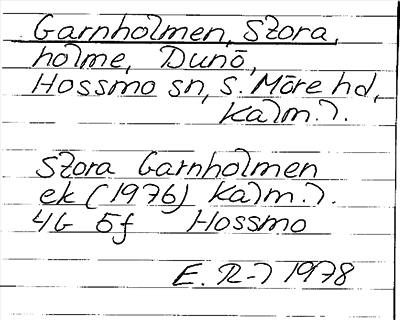 Garnholmen, Stora,
holme, Dunö,
Hossmo sn, S. Möre hd,
Kalm. l.
Stora Garnholmen
ek (1976) Kalm. l.
4G 5f Hossmo
E. R-l 1978